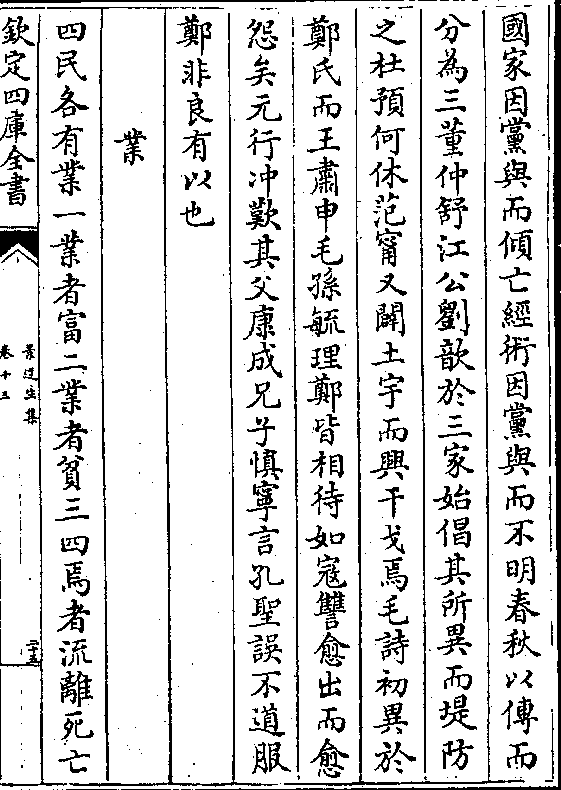 國家因黨與而傾亡經術因黨與而不明春秋以傳而
分為三董仲舒江公劉歆於三家始倡其所異而堤防
之杜預何休范甯又闢土宇而興干戈焉毛詩初異於
鄭氏而王肅申毛孫毓理鄭皆相待如寇讐愈出而愈
怨矣元行冲歎其父康成兄子慎寧言孔聖誤不道服
鄭非良有以也
業
四民各有業一業者富二業者貧三四焉者流離死亡
欽定四庫全書
景迂生集
卷十三
二十五